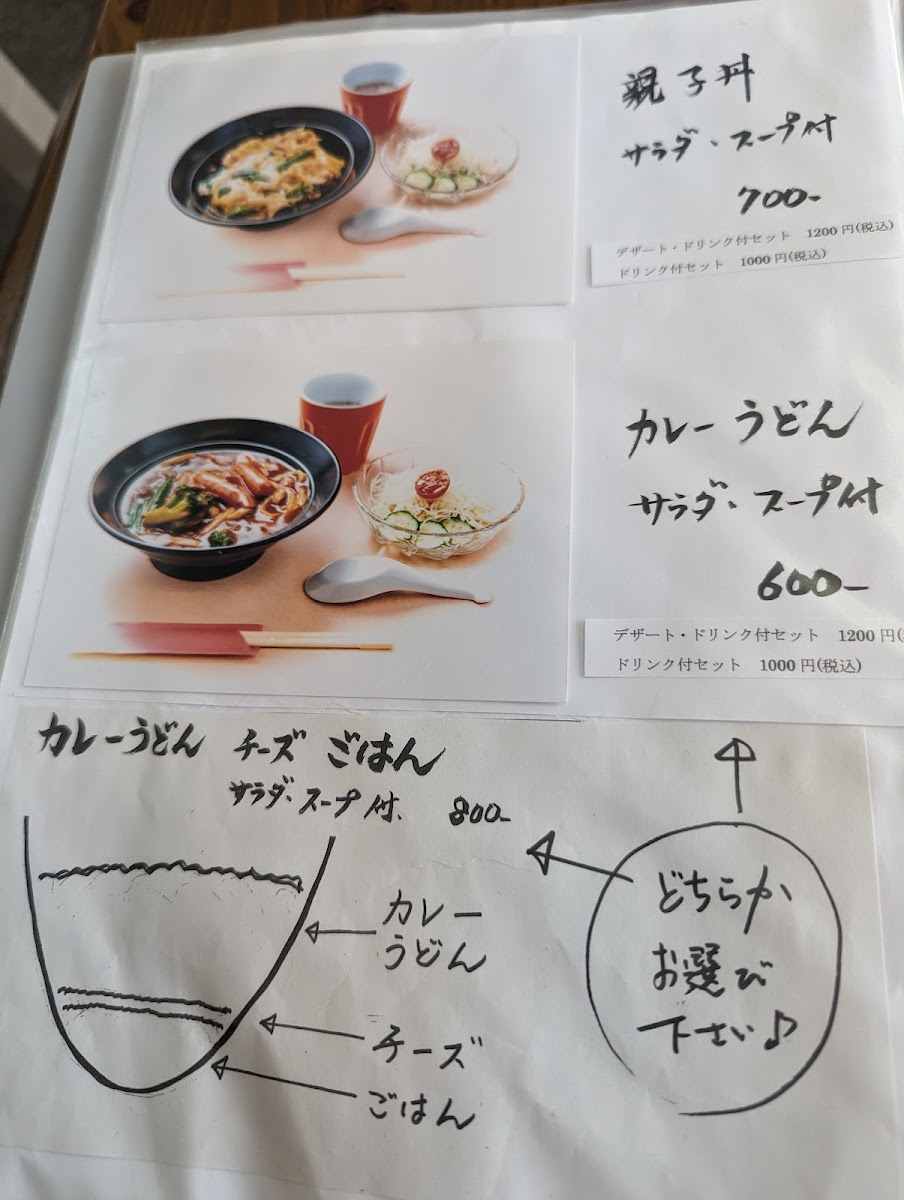 親子丼
サラダ・スープ付
700-
デザート・ドリンク付セット 1200円(税込)
ドリンク付セット 1000円(税込)
カレーうどん
サラダ・スープ付
600-
デザート・ドリンク付セット 1200円(
ドリンク付セット 1000円(税込)
カレーうどん チーズ ごはん
サラダ・スープ付、 800-
カレー
うどん
チーズ
ごはん
どちらか
お選び
下さい♪